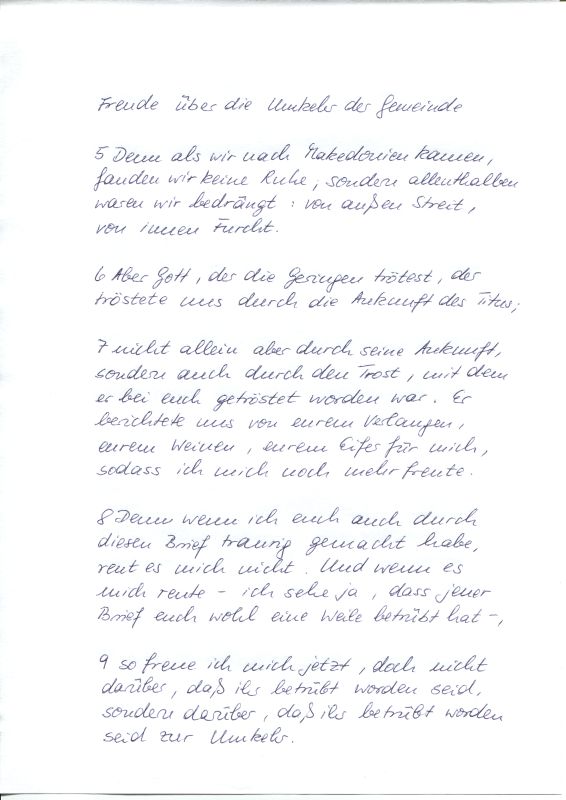 Freude über die Umkehr der Gemeinde
5 Denn als wir nach Makedonien kamen,
fanden wir keine Ruhe; sondern allenthalben
waren wir bedrängt: von außen Streit,
von innen Furcht.
6 Aber Gott, der die Geringen trötest, der
tröstete uns durch die Ankunft des Titus;
7 nicht allein aber durch seine Ankunft,
sondern auch durch den Trost, mit dem
er bei euch getröstet worden war. Er
berichtete uns von eurem Verlangen,
eurem Weinen, eurem Eifer für mich,
sodass ich mich noch mehr freute.
8 Denn wenn ich euch auch durch
diesen Brief traurig gemacht habe,
reut es mich nicht. Und wenn es
mich reute – ich sehe ja, dass jener
Brief euch wohl eine Weile betrübt hat –,
9 so freue ich mich jetzt, doch nicht
darüber, daß ihr betrübt worden seid,
sondern darüber, daß ihr betrübt worden
seid zur Umkehr.